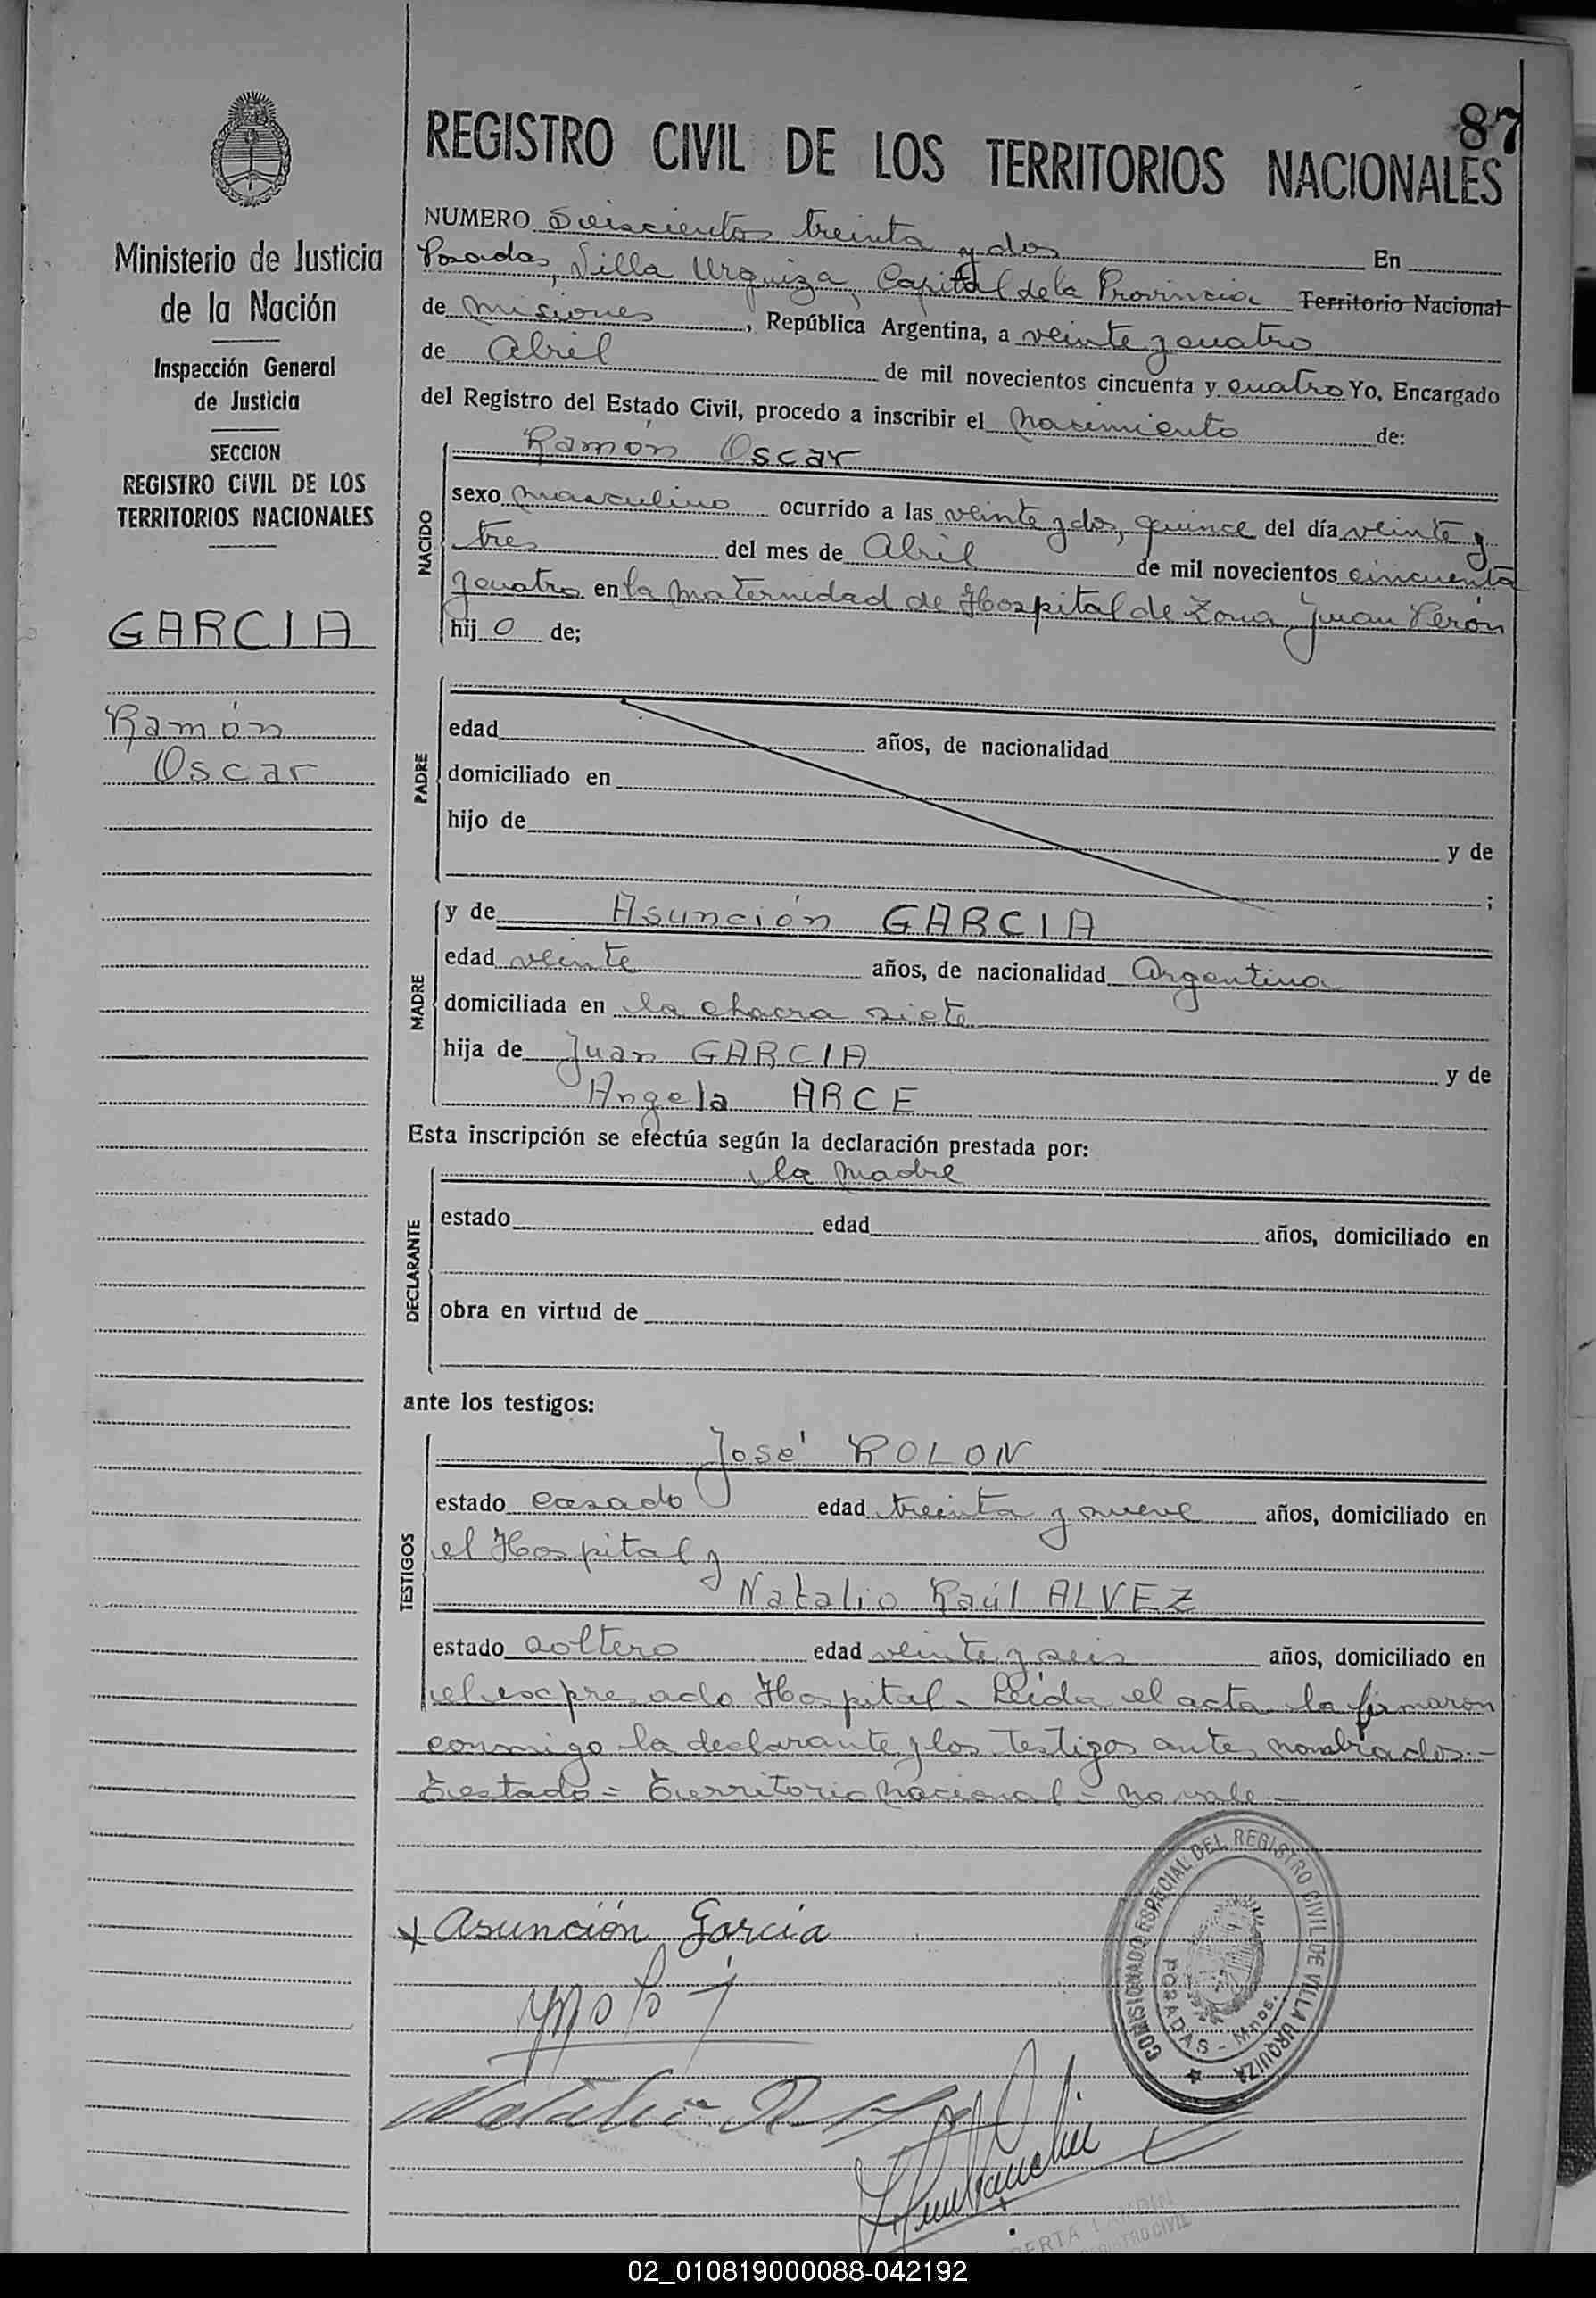 87
REGISTRO CIVIL DE LOS TERRITORIOS NACIONALES
Ministerio de Justicia
de la Nación
Inspección General
de Justicia
SECCION
REGISTRO CIVIL DE LOS
TERRITORIOS NACIONALES
GARCIA
Ramón
Oscar
NUMERO Seiscientos treinta y dos En
Posadas, Villa Urquiza, Capital de la Provincia Territorio Nacional
de Misiones, República Argentina, a veinte y cuatro
de Abril de mil novecientos cincuenta y cuatro Yo, Encargado
del Registro del Estado Civil, procedo a inscribir el Nacimiento de:
NACIDO
Ramón Oscar
sexo masculino ocurrido a las veinte y dos, quince del día veinte y
tres del mes de Abril de mil novecientos cincuenta
y cuatro en la Maternidad de Hospital de Zona Juan Perón
hij o de;
PADRE
edad años, de nacionalidad
domiciliado en
hijo de y de
;
MADRE
y de Asunción GARCIA
edad veinte años, de nacionalidad Argentina
domiciliada en la chacra siete
hija de Juan GARCIA y de
Angela ARCE
Esta inscripción se efectúa según la declaración prestada por:
DECLARANTE
la Madre
estado edad años, domiciliado en
obra en virtud de
ante los testigos:
TESTIGOS
José ROLON
estado casado edad treinta y nueve años, domiciliado en
el Hospital y
Natalio Raúl ALVEZ
estado soltero edad veinte y seis años, domiciliado en
el expresado Hospital - Leída el acta la firmaron
conmigo la declarante y los testigos antes nombrados.-
Testado = Territorio Nacional - No vale -
x Asunción Garcia
Natalio R
COMISIONADO ESPECIAL DEL REGISTRO CIVIL DE VILLA URQUIZA
POSADAS - Mnes.
02_010819000088-042192